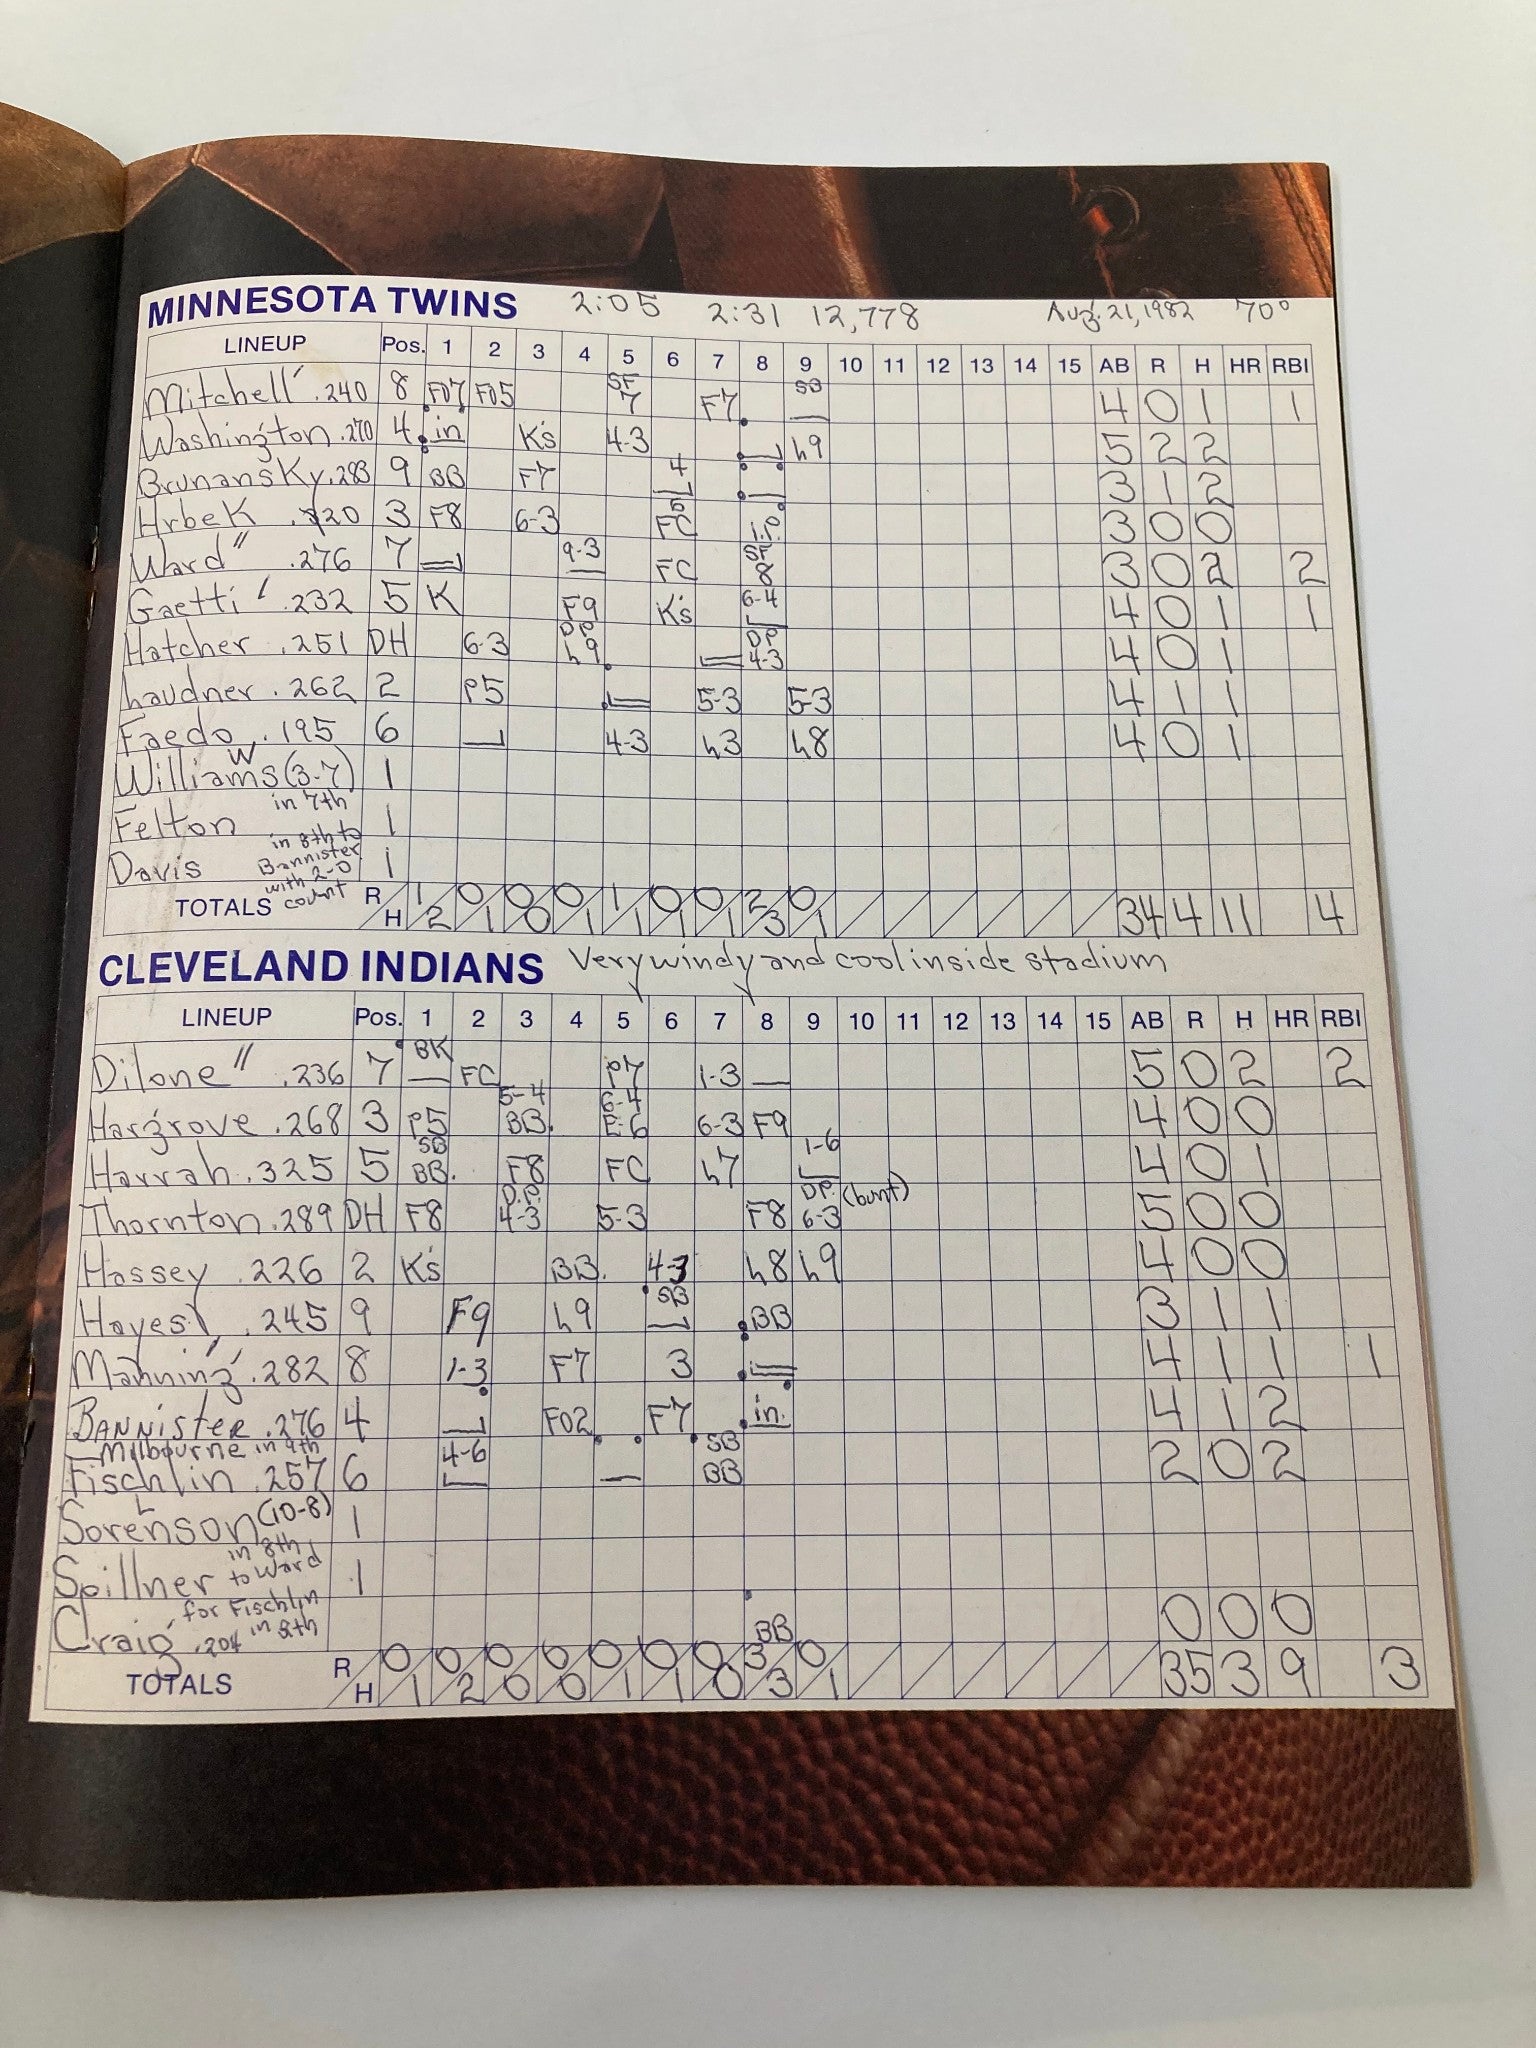 MINNESOTA TWINS 2:05 2:31 12,778 Aug. 21, 1982 70°
LINEUP Pos. 1 2 3 4 5 6 7 8 9 10 11 12 13 14 15 AB R H HR RBI
Mitchell' .240 8 F07 F05 SF 7 F7 SB 4 0 1 1
Washington .270 4 in K's 4-3 L9 5 2 2
Brunansky .283 9 BB F7 4 3 1 2
Hrbek .320 3 F8 6-3 5 FC I.P. 3 0 0
Ward" .276 7 9-3 FC SF 8 3 0 2 2
Gaetti' .232 5 K F9 K's 6-4 4 0 1 1
Hatcher .251 DH 6-3 DP L9 DP 4-3 4 0 1
Laudner .262 2 P5 5-3 5-3 4 1 1
Faedo .195 6 4-3 L3 L8 4 0 1
W
Williams (3-7) 1
in 7th
Felton 1
in 8th to
Davis Bannister 1
with 2-0
TOTALS count R H 1/2 0/1 0/0 0/1 1/1 0/1 0/1 2/3 0/1 34 4 11 4
CLEVELAND INDIANS Very windy and cool inside stadium
LINEUP Pos. 1 2 3 4 5 6 7 8 9 10 11 12 13 14 15 AB R H HR RBI
Dilone" .236 7 BK FC P7 1-3 5 0 2 2
Hargrove .268 3 P5 5-4 BB. 6-4 E-6 6-3 F9 4 0 0
Harrah .325 5 SB BB. F8 FC L7 1-6 4 0 1
Thornton .289 DH F8 D.P. 4-3 5-3 F8 DP. 6-3 (bunt) 5 0 0
Hassey .226 2 K's BB. 4-3 L8 L9 4 0 0
Hayes .245 9 F9 L9 SB BB 3 1 1
Manning' .282 8 1-3 F7 3 4 1 1 1
BANNISTER .276 4 F02 F7 in. 4 1 2
Milbourne in 9th
Fischlin .257 6 4-6 SB BB 2 0 2
L
Sorenson (10-8) 1
in 8th
Spillner to Ward 1
for Fischlin
Craig .204 in 8th BB 0 0 0
TOTALS R H 0/1 0/2 0/0 0/0 0/1 0/1 0/0 3/3 0/1 35 3 9 3